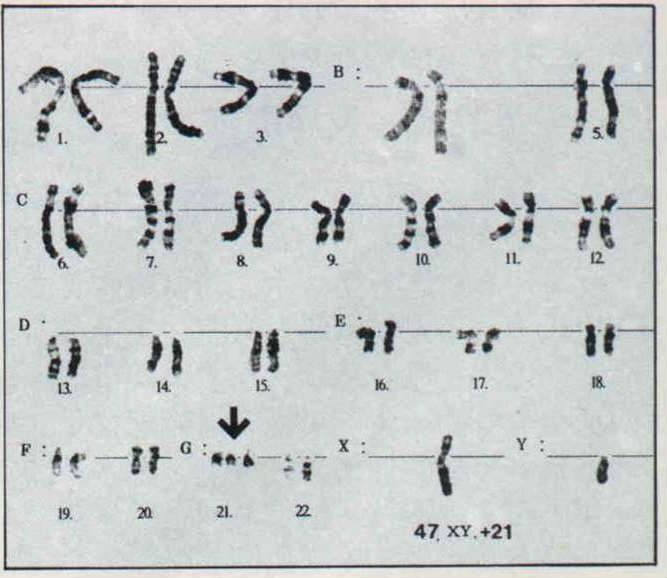 B :
1. 2. 3. 5.
C
6. 7. 8. 9. 10. 11. 12.
D : E :
13. 14. 15. 16. 17. 18.
F : G : X : Y :
19. 20. 21. 22.
47, XY,+21